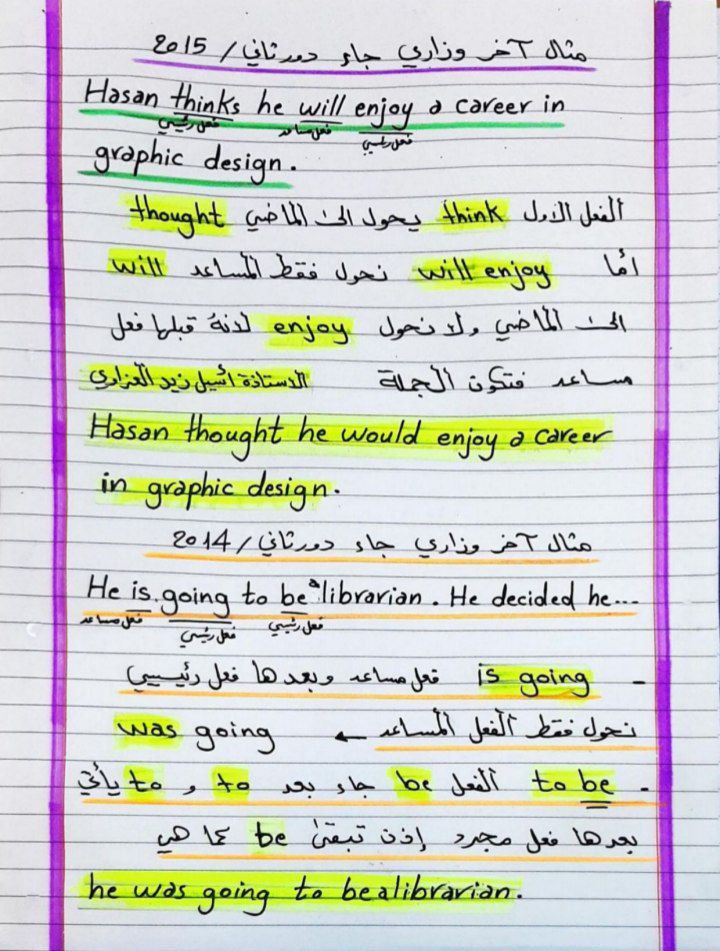 مثال آخر وزاري جاء دور ثاني / 2015
Hasan thinks he will enjoy a career in
فعل رئيسي فعل مساعد فعل رئيسي
graphic design.
الفعل الاول think يحول الى الماضي thought
امّا will enjoy نحول فقط المساعد will
الى الماضي ولا نحول enjoy لانهُ قبلها فعل
مساعد فتكون الجملة الاستاذة أسيل زيد العزاوي
Hasan thought he would enjoy a career
in graphic design.
مثال آخر وزاري جاء دور ثاني / 2014
He is going to be a librarian. He decided he...
فعل مساعد فعل رئيسي فعل رئيسي
- is going فعل مساعد وبعدها فعل رئيسي
نحول فقط الفعل المساعد ← was going
- to be الفعل be جاء بعد to و to يأتي
بعدها فعل مجرد إذن تبقى be كما هي
he was going to be a librarian.